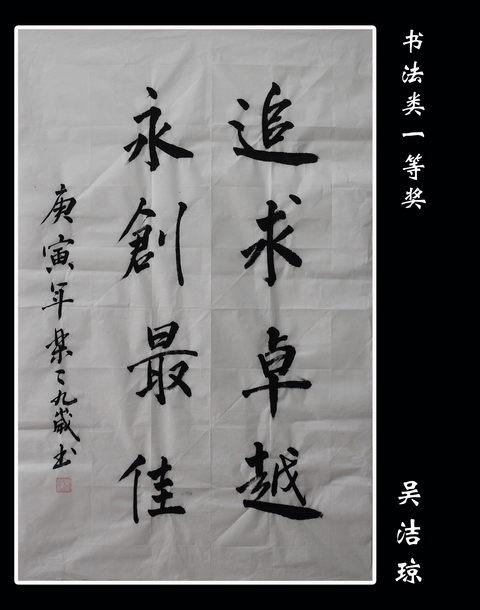 书法类一等奖
追求卓越
永創最佳
庚寅年 九歲书
吴洁琼